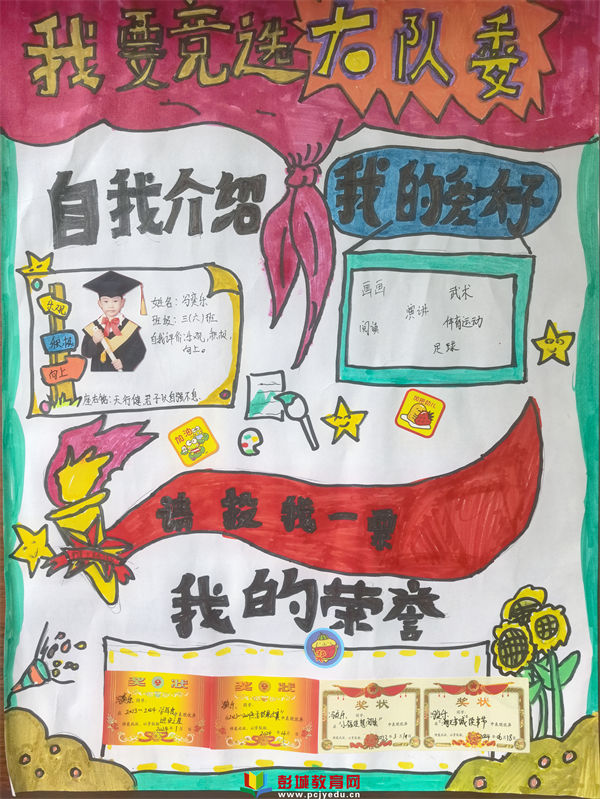 我要竞选大队委
自我介绍
我的爱好
乐观
积极
向上
班级：三(六)班
自我评价：乐观，积极，
向上。
座右铭：天行健，君子以自强不息。
画画
武术
演讲
阅读
体育运动
足球
加油
请投我一票
我的荣誉
奖状
奖状
奖状
奖状
彭城教育网
www.pcjyedu.cn